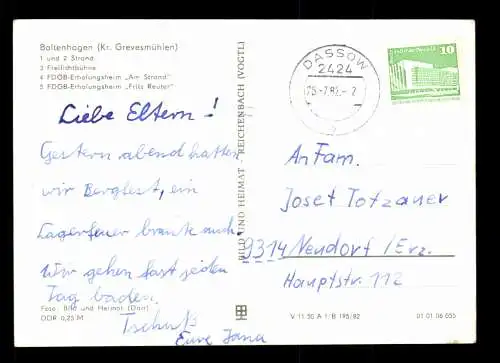 Boltenhagen (Kr. Grevesmühlen)
1 und 2 Strand
3 Freilichtbühne
4 FDGB-Erholungsheim „Am Strand"
5 FDGB-Erholungsheim „Fritz Reuter"
Liebe Eltern!
Gestern abend hatten
wir Bergfest, ein
Lagerfeuer brante auch.
Wir gehen fast jeden
Tag baden.
Tschüß
Eure Jana
Foto: Bild und Heimat (Darr)
DDR 0,25 M
BILD UND HEIMAT REICHENBACH (VOGTL)
DASSOW
2424
10
An Fam.
Josef Totzauer
9314 Neudorf/Erz.
Hauptstr. 112
V 11 50 A 1/B 195/82
01 01 06 055